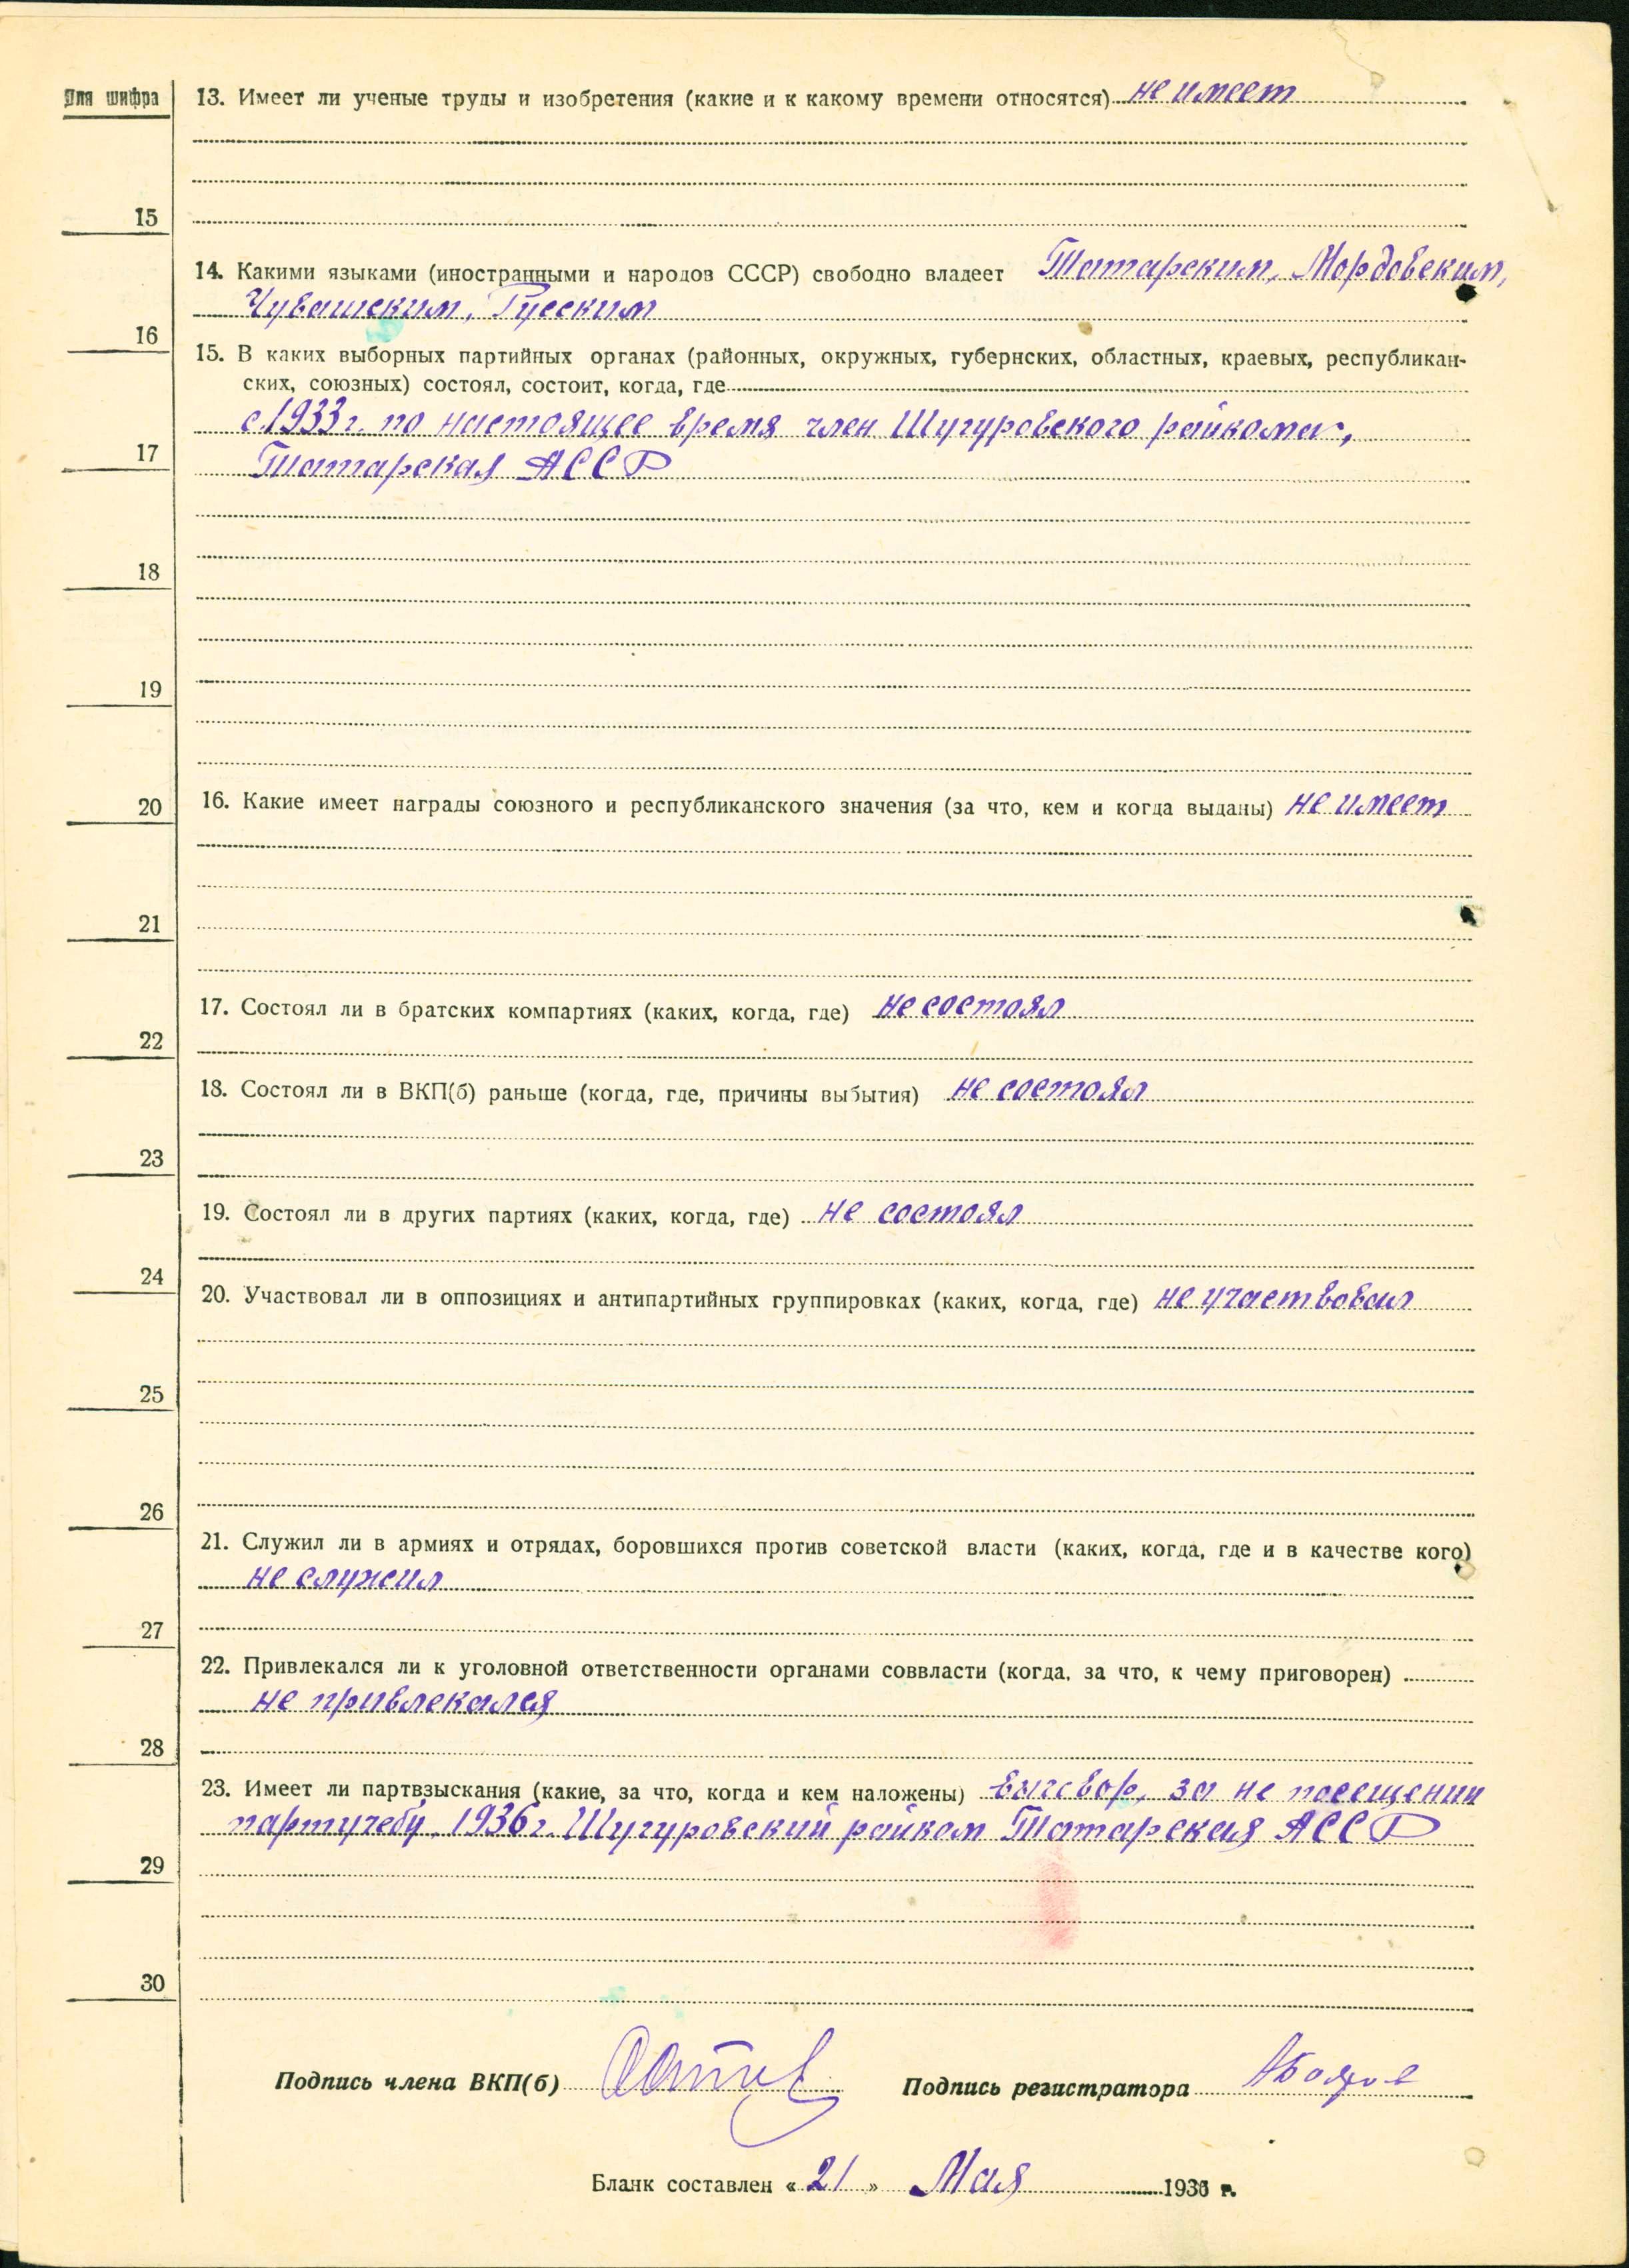 Для шифра
13. Имеет ли ученые труды и изобретения (какие и к какому времени относятся) не имеет
15
14. Какими языками (иностранными и народов СССР) свободно владеет Татарским, Мордовским,
Чувашским, Русским
16
15. В каких выборных партийных органах (районных, окружных, губернских, областных, краевых, республикан-
ских, союзных) состоял, состоит, когда, где
с 1933 г. по настоящее время член Шугуровского райкома,
17
Татарская АССР
18
19
20
16. Какие имеет награды союзного и республиканского значения (за что, кем и когда выданы) не имеет
21
17. Состоял ли в братских компартиях (каких, когда, где) не состоял
22
18. Состоял ли в ВКП(б) раньше (когда, где, причины выбытия) не состоял
23
19. Состоял ли в других партиях (каких, когда, где) не состоял
24
20. Участвовал ли в оппозициях и антипартийных группировках (каких, когда, где) не участвовал
25
26
21. Служил ли в армиях и отрядах, боровшихся против советской власти (каких, когда, где и в качестве кого)
не служил
27
22. Привлекался ли к уголовной ответственности органами соввласти (когда, за что, к чему приговорен)
не привлекался
28
23. Имеет ли партвзыскания (какие, за что, когда и кем наложены) выговор, за не посещении
партучебу, 1936 г. Шугуровский райком Татарская АССР
29
30
Подпись члена ВКП(б) Подпись регистратора
Бланк составлен «21» Мая 1936 г.